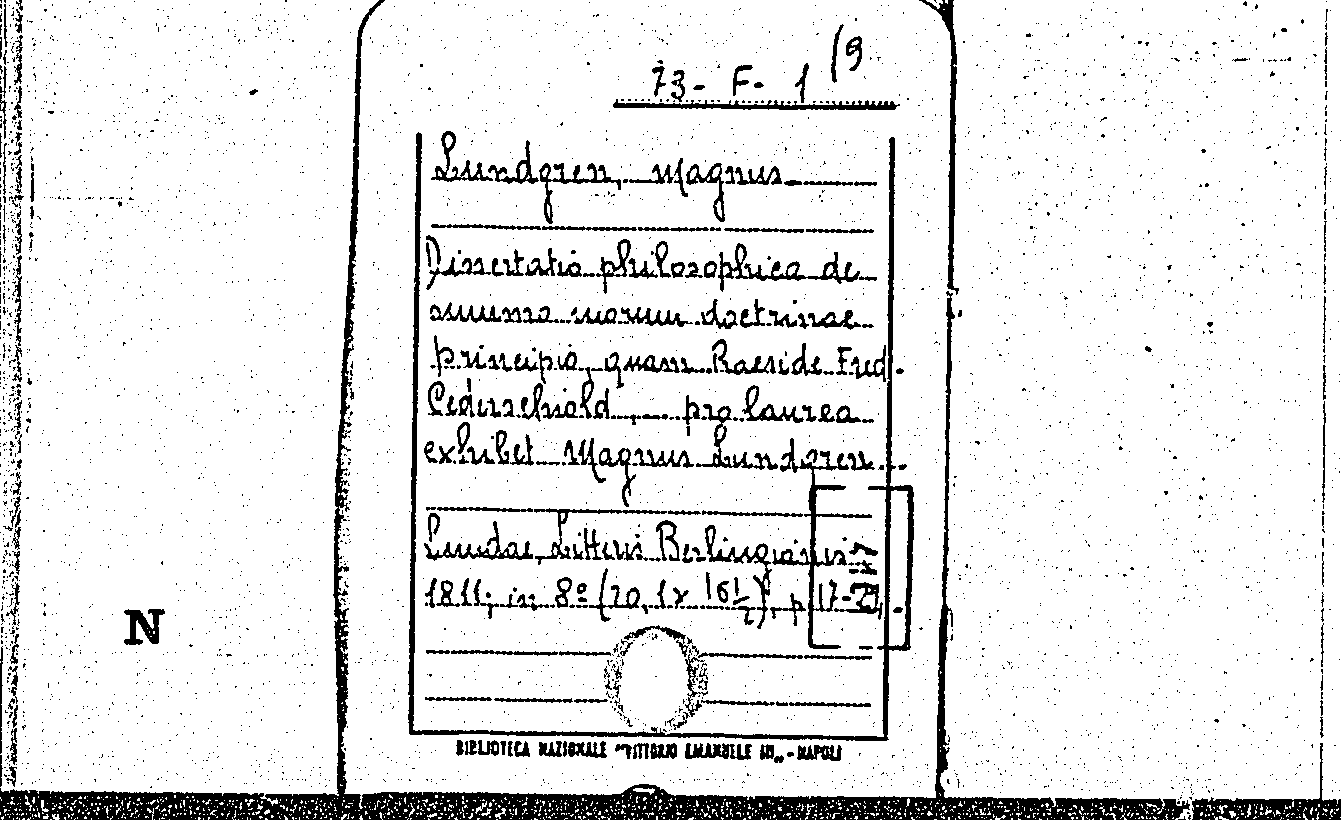 73- F- 1 (9
Lundgren, Magnus
Dissertatio philosophica de
summo morum doctrinae
principio, quam Raeside Fred.
Cederschiold, pro laurea
exhibet Magnus Lundgren.
Lundae, Litteris Berlingianis
1811; in 8º (20,1 x 16 1/2), p 17-
N
BIBLIOTECA NAZIONALE "VITTORIO EMANUELE III„ - NAPOLI